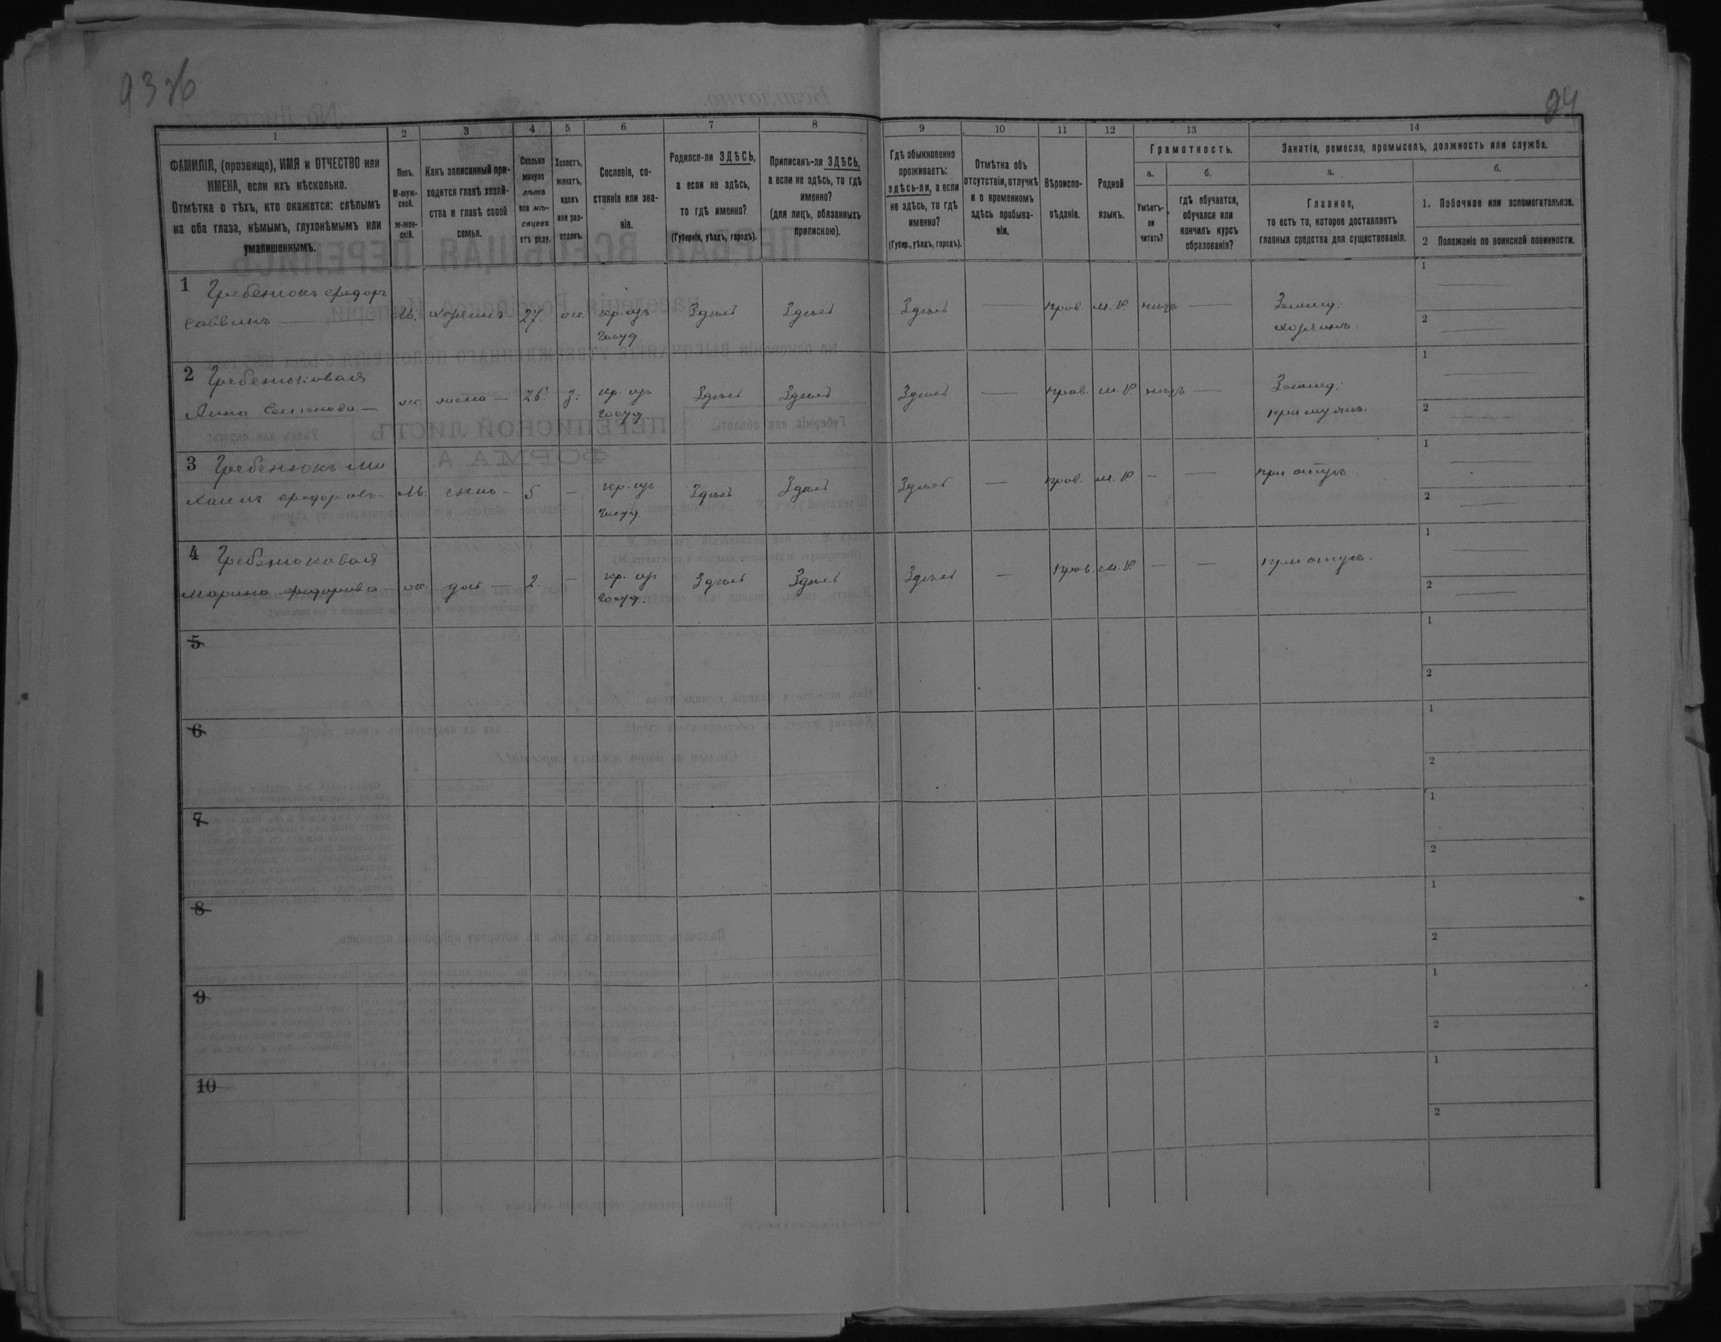 937б
24
1 2 3 4 5 6 7 8 9 10 11 12 13 14
ФАМИЛІЯ, (прозвище), ИМЯ и ОТЧЕСТВО или
ИМЕНА, если ихъ нѣсколько.
Отмѣтка о тѣхъ, кто окажется: слѣпымъ
на оба глаза, нѣмымъ, глухонѣмымъ или
умалишеннымъ.
Полъ.
М-муж-
ской.
Ж-жен-
скій.
Какъ записанный при-
ходится главѣ хозяй-
ства и главѣ своей
семьи.
Сколько
минуло
лѣтъ
или мѣ-
сяцевъ
отъ роду.
Холостъ,
женатъ,
вдовъ
или раз-
веденъ.
Сословіе, со-
стояніе или зва-
ніе.
Родился-ли ЗДѢСЬ,
а если не здѣсь,
то гдѣ именно?
(Губернія, уѣздъ, городъ).
Приписанъ-ли ЗДѢСЬ,
а если не здѣсь, то гдѣ
именно?
(для лицъ, обязанныхъ
припискою).
Гдѣ обыкновенно
проживаетъ:
здѣсь-ли, а если
не здѣсь, то гдѣ
именно?
(Губер., уѣздъ, городъ).
Отмѣтка объ
отсутствіи, отлучкѣ
и о временномъ
здѣсь пребыва-
ніи.
Вѣроиспо-
вѣданіе.
Родной
языкъ.
Грамотность.
а.
Умѣетъ-
ли
читать?
б.
гдѣ обучается,
обучался или
кончилъ курсъ
образованія?
Занятіе, ремесло, промыселъ, должность или служба.
а.
Главное,
то есть то, которое доставляетъ
главныя средства для существованія.
б.
1. Побочное или вспомогательное.
2 Положеніе по воинской повинности.
1 Гребенюкъ Федоръ
Саввинъ М. хозяинъ 27 ж. кр. изъ госуд Здѣсь Здѣсь Здѣсь — прав. м.р. нѣтъ — Землед: хозяинъ
1
2
2 Гребенюковая
Анна Семенова — ж — 26 з: кр. изъ госуд Здѣсь Здѣсь Здѣсь — прав. м.р. нѣтъ — Землед: при мужѣ.
1
2
3 Гребенюкъ Ми
хаилъ Федоровъ М. сынъ — 5 — кр. изъ госуд Здѣсь Здѣсь Здѣсь — прав. м.р. — — при отцѣ.
1
2
4 Гребенюковая
Марина Федорова ж доч — 2 — кр. изъ госуд. Здѣсь Здѣсь Здѣсь — прав. м.р. — — при отцѣ.
1
2
5
1
2
6
1
2
7
1
2
8
1
2
9
1
2
10
1
2